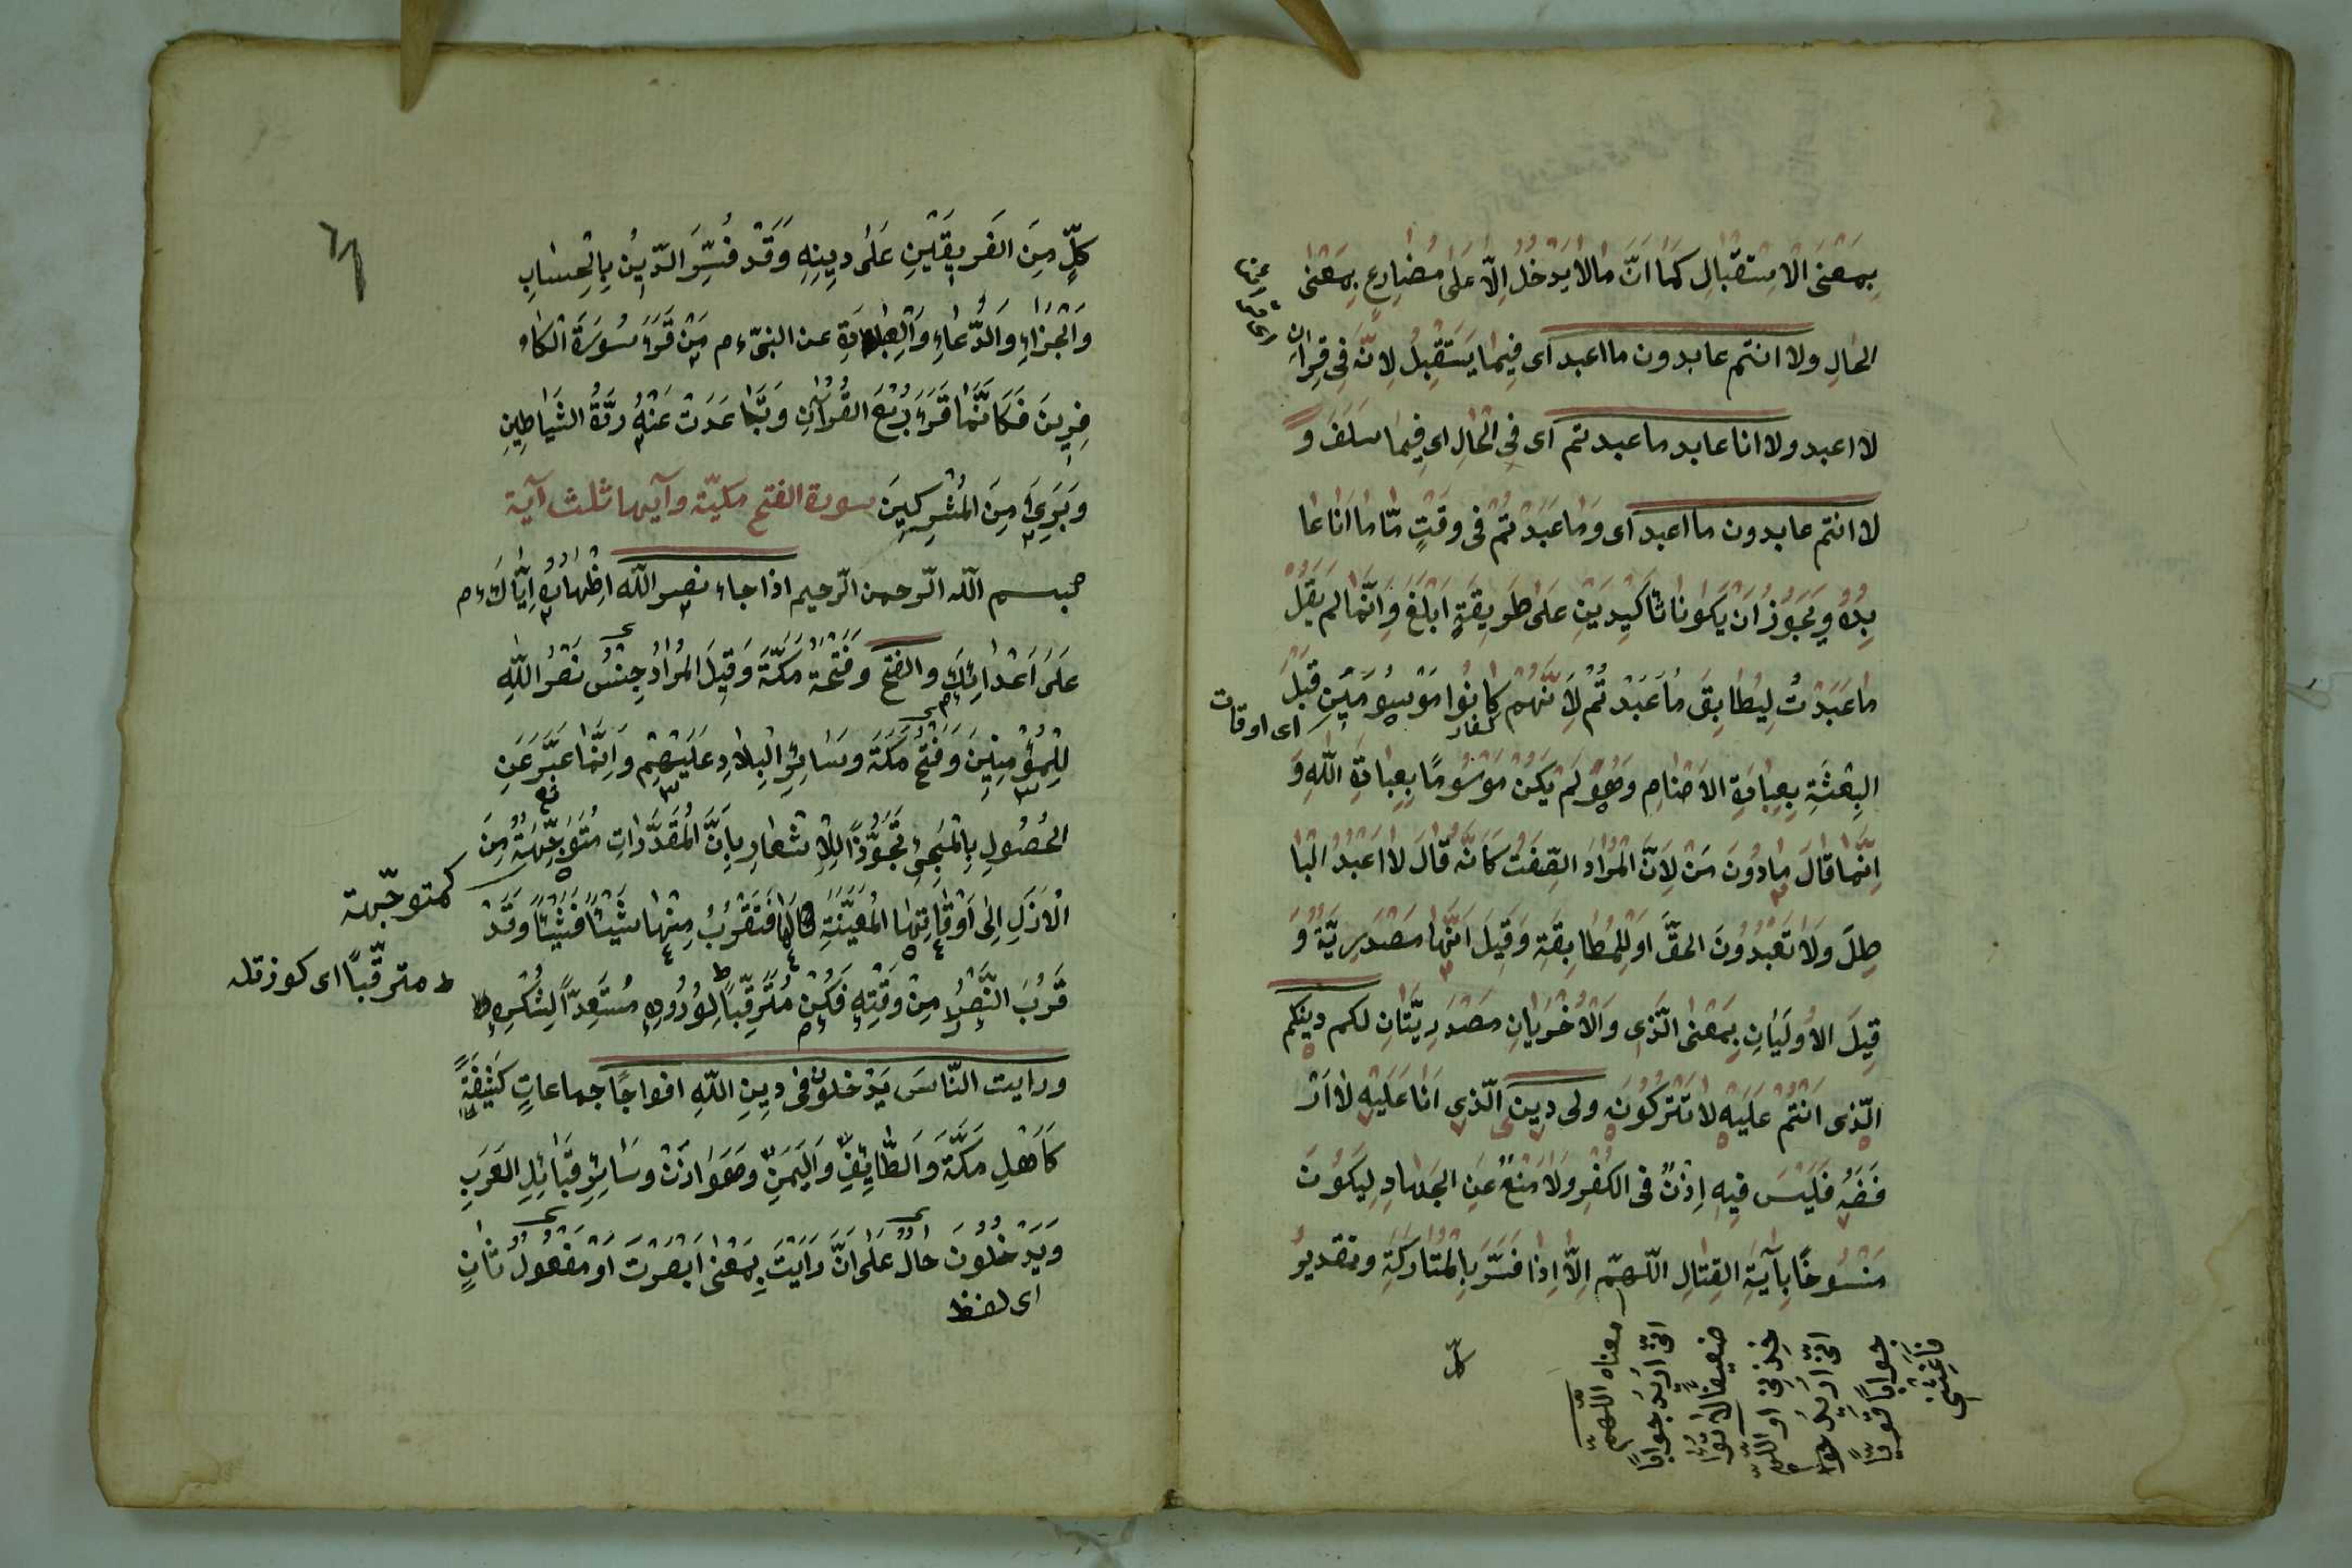 بِمَعْنَى الْاِسْتِقْبَالِ كَمَا اَنَّ مَا لَا يَدْخُلُ اِلَّا عَلَى مُضَارِعٍ بِمَعْنَى
الحَالِ ولا انتم عابدون ما اعبد اى فِيمَا يَسْتَقْبِلُ لِاَنَّهُ فِي قِرَانِ
لا اعبد ولا انا عابد ما عبدتم اى فِي الْحَالِ اى فِيمَا سَلَفَ وَ
لا انتم عابدون ما اعبد اى وَمَا عَبَدْتُمْ فى وقتٍ مَّا مَا اَنَا عَا
بِدُهُ وَيَجُوزُ اَنْ يَكُونَا تَأكِيدَيْنِ عَلَى طَرِيقَةٍ اَبْلَغَ وَاِنَّمَا لم يَقُلْ
مَا عَبَدْتُ لِيُطَابِقَ مَا عَبَدْتُمْ لِاَنَّهُمْ كَانُوا مَوْسُومِينَ قَبْلَ
كفار
اى اوقات
البِعْثَةِ بِعِبَادَةِ الْاَصْنَامِ وَهُوَ لَمْ يَكُنْ مَوْسُومًا بِعِبَادَةِ اللّٰهِ وَ
اِنَّمَا قَالَ مَا دُونَ مَنْ لِاَنَّ الْمُرَادَ الصِّفَتُ كَاَنَّهُ قَالَ لَا اَعْبُدُ الْبَا
طِلَ وَلَا تَعْبُدُونَ الحَقَّ اَوْ لِلْمُطَابِقَةِ وَقِيلَ اَنَّهَا مَصْدَرِيَّةٌ وَ
قِيلَ الْاُولَيَانِ بِمَعْنَى الَّذِى وَالْاُخْرَيَانِ مَصْدَرِيَّتَانِ لكم دينكم
الَّذِى اَنْتُمْ عَلَيْهِ لَا تَتْرُكُونَهُ ولى دين الَّذِى اَنَا عَلَيْهِ لَا اَرْ
فَضُهُ فَلَيْسَ فِيهِ اِذْنٌ فى الكُفْرِ وَلَا مَنْعٌ عَنِ الْجِهَادِ لِيَكُونَ
مَنْسُوخًا بِآيَةِ القِتَالِ اللّٰهُمَّ اِلَّا اِذَا فُسِّرَ بِالْمُتَارَكَةِ وتقدير
معناه اللّٰهمّ
انّى اُرِيدُ جوابًا
ضعيفا لا تؤا
خِذْنِى او اللّٰهمّ
انّى اُرِيدُ جوا
جوابًا قويًّا
فَاَعِنِّى
كلٍّ مِنَ الفَرِيقَيْنِ عَلَى دِينِهِ وَقَدْ فُسِّرَ الدِّينُ بِالْحِسَابِ
وَالْجَزَاءِ وَالدُّعَاءِ وَالْعِبَادَةِ عن النبىّ ءم مَنْ قَرَءَ سُورَةَ الْكَا
فِرِينَ فَكَاَنَّمَا قَرَءَ رُبْعَ القُرْاٰنِ وَتَبَاعَدَتْ عَنْهُ مَرَدَةُ الشَّيَاطِينِ
وَبَرِئَ مِنَ الْمُشْرِكِينَ سورة الفتح مكيّة وآيها ثلث آية
بسم اللّٰه الرّحمن الرّحيم اذا جاء نصر اللّٰه اِظْهَارُهُ اِيَّاكَ ءم
عَلَى اَعْدَائِكَ والفتح وَفَتْحُهُ مَكَّةَ وَقِيلَ الْمُرَادُ جِنْسُ نَصْرُ اللّٰهِ
لِلْمُؤْمِنِينَ وَفَتْحُ مَكَّةَ وَسَائِرُ الْبِلَادِ عَلَيْهِمْ وَاِنَّمَا عَبَّرَ عَنِ
الْحُصُولِ بِالْمَجِئِ تَجَوُّزًا لِلْاِشْعَارِ بِاَنَّ الْمُقَدَّرَاتِ مُتَوَجِّهَةٌ مِنَ
الْاَزَلِ اِلَى اَوْقَاتِهَا الْمُعَيَّنَةِ لَهَا فَتَقْرُبُ مِنْهَا شَيْئًا فَشَيْئًا وَقَدْ
قَرُبَ النَّصْرُ مِنْ وَقْتِهِ فَكُنْ مُتَرَقِّبًا لِوُرُودِهِ مُسْتَعِدًّا لِشُكْرِهِ
ورايت النَّاسَ يَدْخلون فى دِينِ اللّٰهِ افواجًا جماعاتٍ كَثِيفَةً
كَاَهْلِ مَكَّةَ وَالطَّائِفِ وَالْيَمَنِ وَهَوَازِنْ وَسَائِرِ قَبَائِلِ العَرَبِ
وَيَدْخُلُونَ حَالٌ عَلَى اَنَّ رَاَيْتَ بِمَعْنَى اَبْصَرْتَ اَوْ مَفْعُولٌ ثَانٍ
اى لفظ
كمتوجّهة
مترقّبًا اى كوزتله